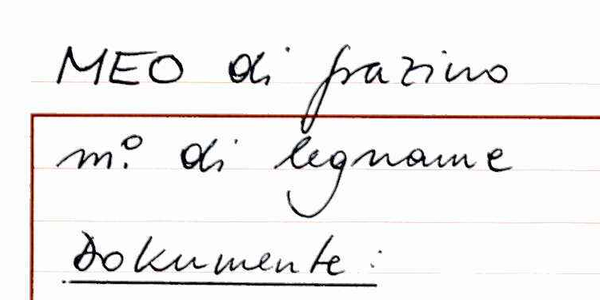 MEO di frazino
m.º di legname
Dokumente: